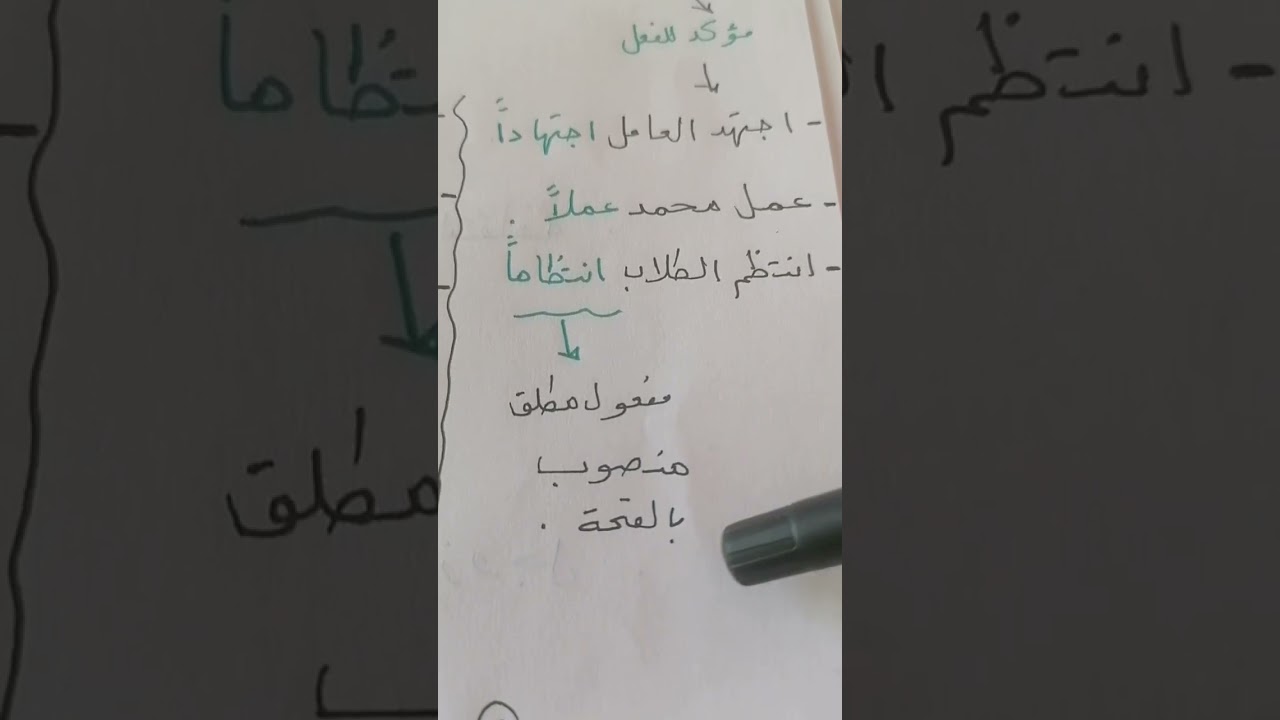 مؤكد للفعل
- اجتهد العامل اجتهاداً
- عمل محمد عملاً .
- انتظم الطلاب انتظاماً
مفعول مطلق
منصوب
بالفتحة .